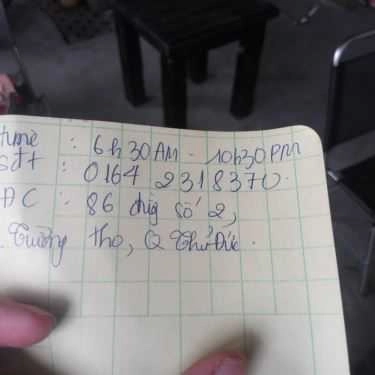 time : 6h30AM - 10h30PM
sđt : 0164 2318370.
ĐC : 86 đng số 2,
. Trường thọ, Q Thủ Đức.